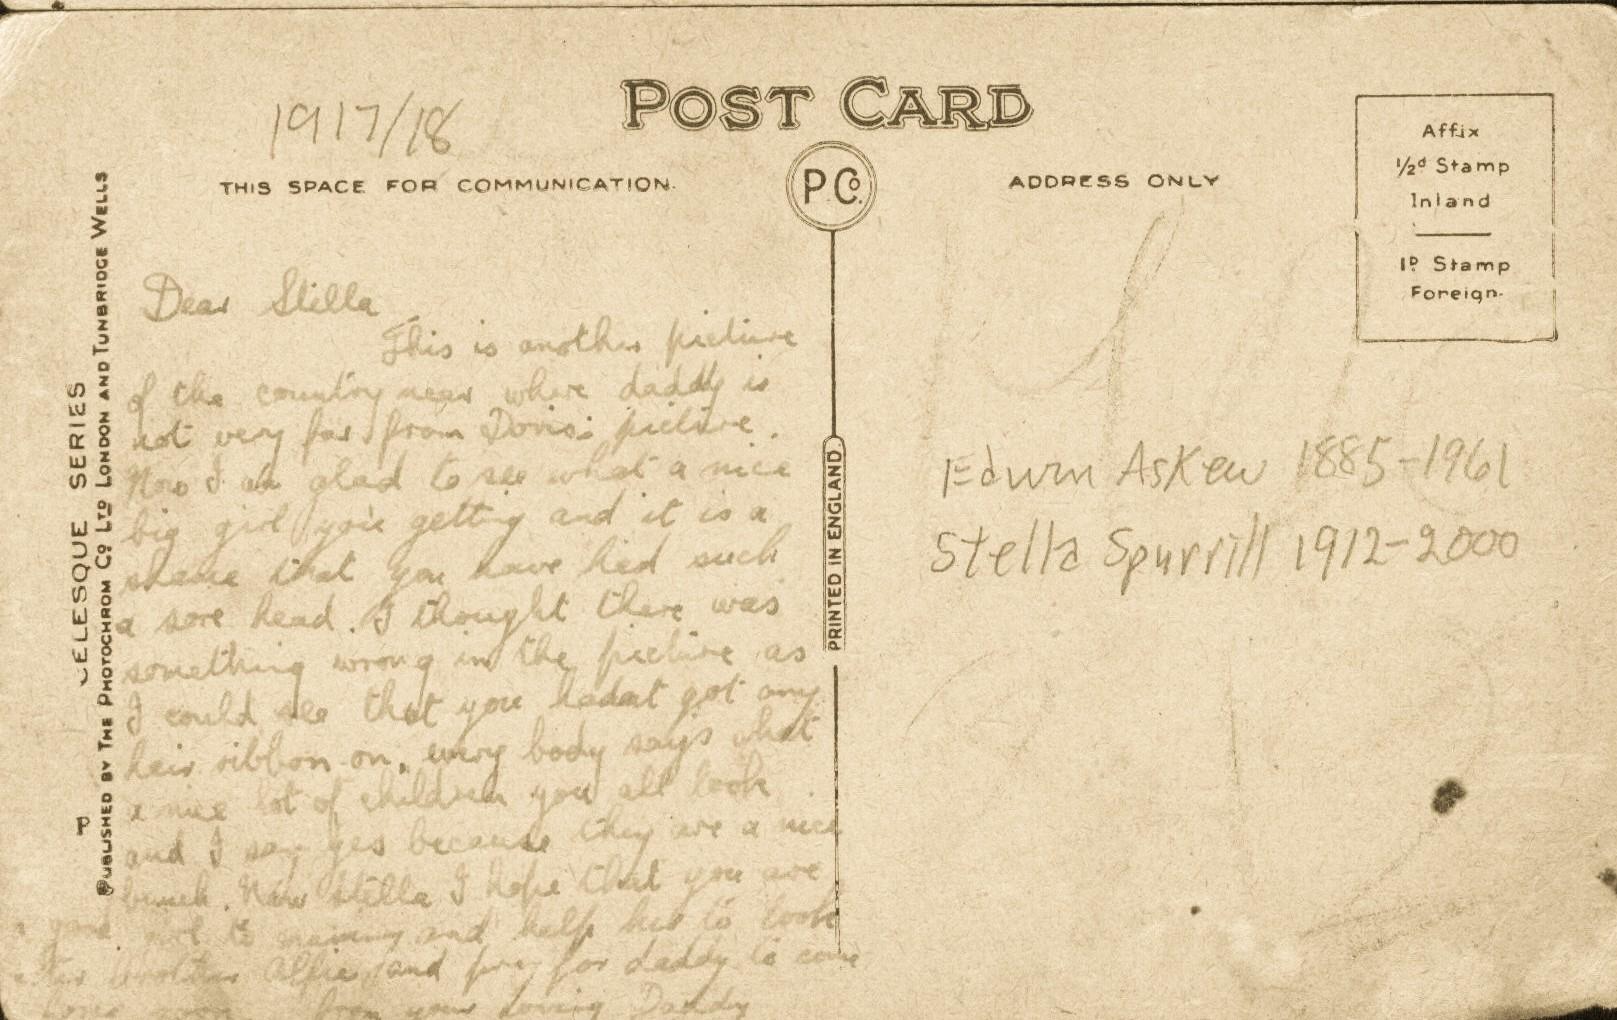 POST CARD
1917/18
THIS SPACE FOR COMMUNICATION.
P. Co.
ADDRESS ONLY
Affix
1/2d Stamp
Inland
1D Stamp
Foreign.
CELESQUE SERIES
PUBLISHED BY THE PHOTOCHROM Co LTD LONDON AND TUNBRIDGE WELLS
P
Dear Stella
This is another picture
of the country near where daddy is
not very far from Doris: picture.
Now I am glad to see what a nice
big girl you're getting and it is a
shame that you have had such
a sore head. I thought there was
something wrong in the picture as
I could see that you hadnt got any
hair ribbon on, every body says what
a nice lot of children you all look
and I say yes because they are a nice
bunch. Now Stella I hope that you are
a good girl to mammy and help her to look
after brother Alfie and pray for daddy to come
home soon from your loving Daddy
PRINTED IN ENGLAND.
Edwin Askew 1885-1961
Stella Spurrill 1912-2000